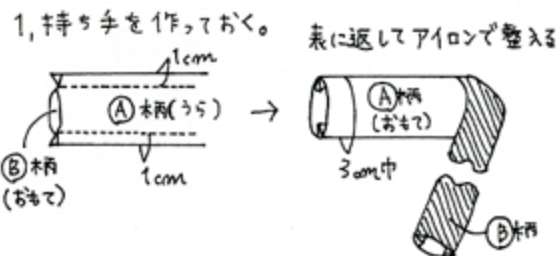 1, 持ち手を作っておく。
1cm
Ⓐ柄(うら)
1cm
Ⓑ柄
(おもて)
→
表に返してアイロンで整える
Ⓐ柄
(おもて)
3cm巾
Ⓑ柄